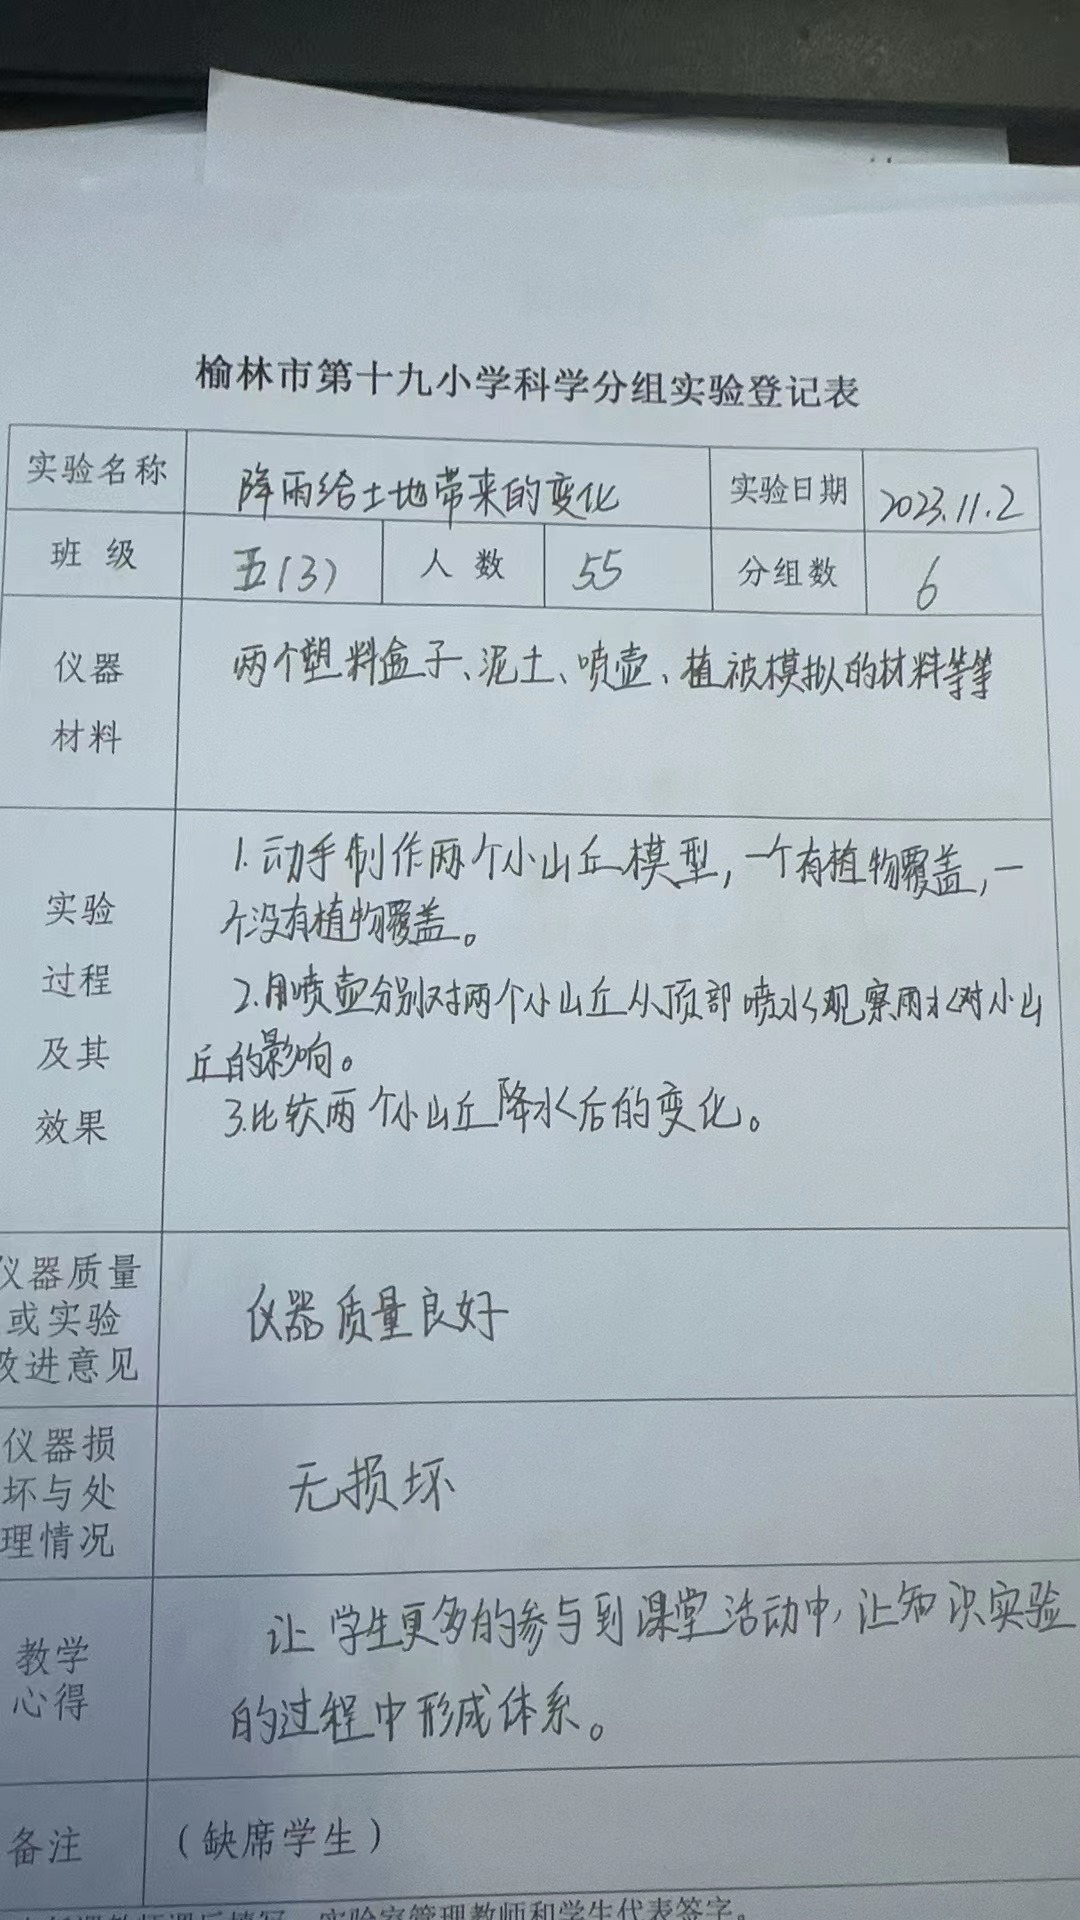 榆林市第十九小学科学分组实验登记表
实验名称 降雨给土地带来的变化 实验日期 2023.11.2
班级 五(3) 人数 55 分组数 6
仪器
材料
两个塑料盒子、泥土、喷壶、植被模拟的材料等等
实验
过程
及其
效果
1.动手制作两个小山丘模型,一个有植物覆盖,一
个没有植物覆盖。
2.用喷壶分别对两个小山丘从顶部喷水观察雨水对小山
丘的影响。
3.比较两个小山丘降水后的变化。
仪器质量
或实验
改进意见
仪器质量良好
仪器损
坏与处
理情况
无损坏
教学
心得
让学生更多的参与到课堂活动中,让知识实验
的过程中形成体系。
备注 (缺席学生)
实验室管理教师和学生代表签字。